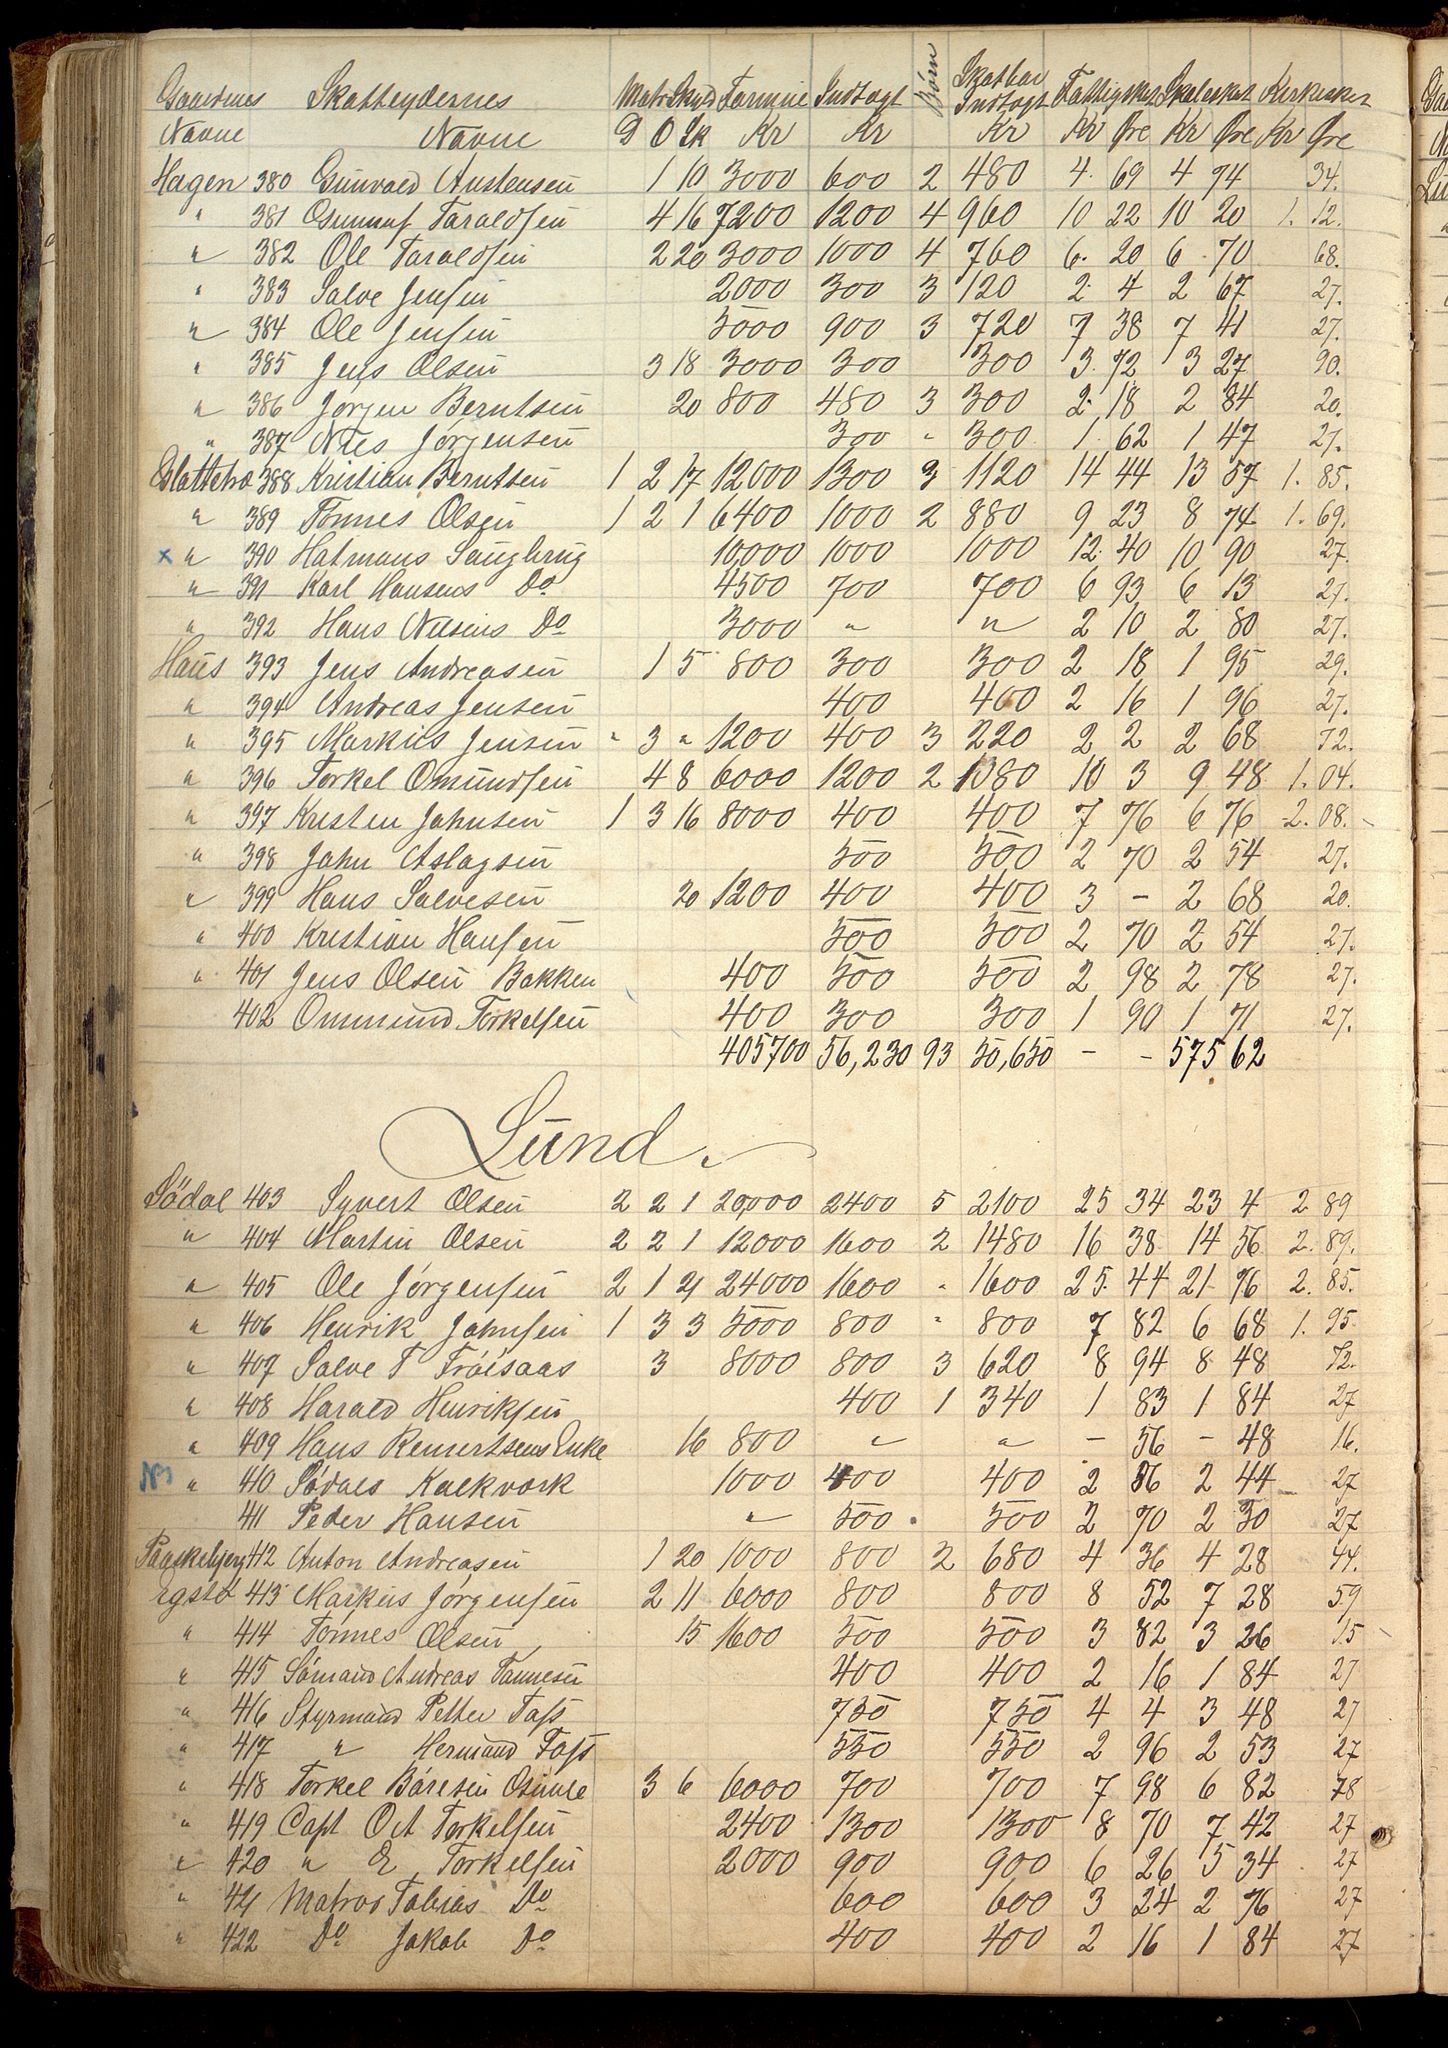 Gaardenes Skatteydernes Matr Skyld Formue Indtægt Børn Skatbar Indtægt Fattigskat Skoleskat Kirkeskat
Navne Navne D O Sk Kr Kr Kr Kr Øre Kr Øre Kr Øre
Hagen 380 Gunvald Austensen 1 10 3000 600 2 480 4 69 4 74 34.
" 381 Gunnuf Taraldsen 4 16 7200 1200 4 960 10 22 10 20 1. 12.
" 382 Ole Taraldsen 2 20 3000 1000 4 760 6. 20 6 70 68.
" 383 Salve Jensen 2000 300 3 120 2 4 2 67 27.
" 384 Ole Jensen 5000 900 3 720 7 38 7 41 27.
" 385 Jens Olsen 3 18 3000 300 300 3 72 3 27 90.
" 386 Jørgen Berntsen 20 800 480 3 300 2 18 2 84 20.
" 387 Nils Jørgensen 300 " 300 1 62 1 47 27.
388 Kristian Berntsen 1 2 17 12000 1300 3 1120 14 44 13 57 1. 85.
" 389 Tønnes Olsen 1 2 1 6400 1000 2 880 9 23 8 74 1. 69.
x " 390 Hatmans Saugbrug 10,000 1000 1000 12 40 10 90 27.
" 391 Karl Hansens Do 4500 700 700 6 93 6 13 27.
" 392 Hans Nilsens Do 3000 " " 2 10 2 80 27.
Haus 393 Jens Andreasen 1 5 800 300 300 2 18 1 95 29.
" 394 Andreas Jensen 400 400 2 16 1 96 27.
" 395 Markus Jensen " 3 " 1200 400 3 220 2 2 2 68 72.
" 396 Torkel Omundsen 4 8 6000 1200 2 1080 10 3 9 48 1. 04.
" 397 Kristen Johnsen 1 3 16 8000 400 400 7 76 6 76 2. 08.
" 398 John Aslagsen 500 500 2 70 2 54 27.
" 399 Hans Salvesen 20 1200 400 400 3 - 2 68 20.
" 400 Kristian Hansen 500 500 2 70 2 54 27.
" 401 Jens Olsen Bakken 400 500 500 2 98 2 78 27.
402 Ommund Torkelsen 400 300 300 1 90 1 71 27.
405700 56,230 93 50,650 - - 575 62
Lund.
Södal 403 Syvert Olsen 2 2 1 20,000 2400 5 2100 25 34 23 4 2 89
" 404 Martin Olsen 2 2 1 12000 1600 2 1480 16 38 14 56 2. 89.
" 405 Ole Jørgensen 2 1 21 24000 1600 " 1600 25 44 21 76 2. 85.
" 406 Henrik Johnsen 1 3 3 5000 800 " 800 7 82 6 68 1. 95
" 407 Salve T Tröisaas 3 8000 800 3 620 8 94 8 48 72.
" 408 Harald Henriksen 400 1 340 1 83 1 84 27
" 409 Hans Reinertsens Enke 16 800 " " - 56 - 48 16.
" 410 Södals Kalkværk 1000 400 400 2 86 2 44 27
411 Peder Hansen " 500 500 2 70 2 30 27
412 Anton Andreasen 1 20 1000 800 2 680 4 36 4 28 44.
413 Markus Jørgensen 2 11 6000 800 800 8 52 7 28 59
" 414 Tönnes Olsen 15 1600 500 500 3 82 3 26 15
" 415 Sömand Andreas Tönnesen 400 400 2 16 1 84 27
" 416 Styrmand Petter Foss 750 750 4 4 3 48 27
" 417 " Hermand Foss 550 550 2 96 2 53 27
" 418 Torkel Böresen 3 6 6000 700 700 7 98 6 82 78
" 419 Capt Oct Torkelsen 2400 1300 1300 8 70 7 42 27
" 420 " E Torkelsen 2000 900 900 6 26 5 34 27
" 421 Matros Tobias Do 600 600 3 24 2 76 27
" 422 Do Jakob Do 400 400 2 16 1 84 27